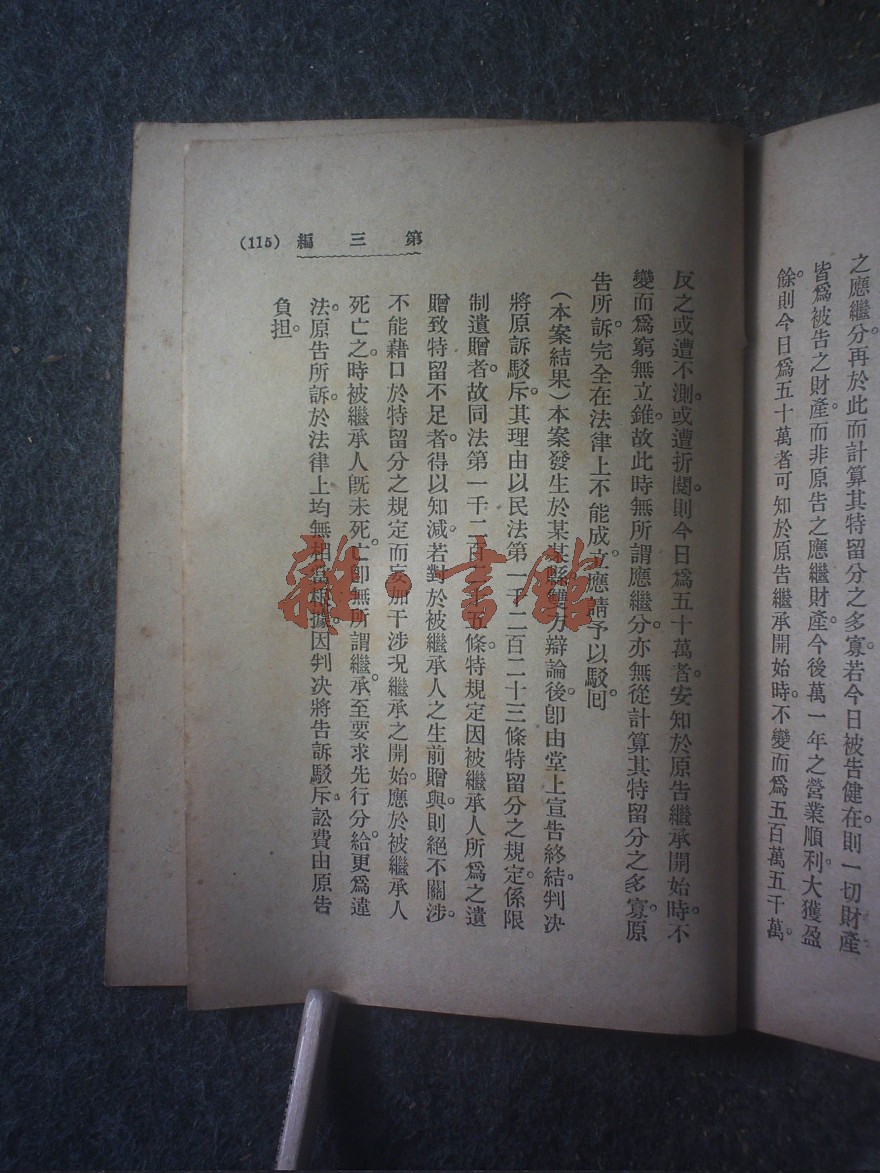 之應繼分再於此而計算其特留分之多寡。若今日被告健在則一切財產
皆爲被告之財產。而非原告之應繼財產。今後萬一年之營業順利。大獲盈
餘。則今日爲五十萬者。可知於原告繼承開始時。不變而爲五百萬五千萬。
第三編 (115)
反之或遭不測。或遭折閱。則今日爲五十萬者。安知於原告繼承開始時。不
變而爲窮無立錐。故此時無所謂應繼分。亦無從計算其特留分之多寡。原
告所訴。完全在法律上不能成立。應請予以駁回。
(本案結果)本案發生於某某縣。雙方辯論後。卽由堂上宣告終結。判决
將原訴駁斥。其理由以民法第一千二百二十三條特留分之規定。係限
制遺贈者。故同法第一千二百二十五條。特規定因被繼承人所爲之遺
贈致特留不足者。得以知減。若對於被繼承人之生前贈與。則絕不關涉。
不能藉口於特留分之規定而妄加干涉。况繼承之開始。應於被繼承人
死亡之時。被繼承人旣未死亡。卽無所謂繼承。至要求先行分給。更爲違
法。原告所訴。於法律上均無相當根據。因判决將告訴駁斥。訟費由原告
負担。
雜·書館